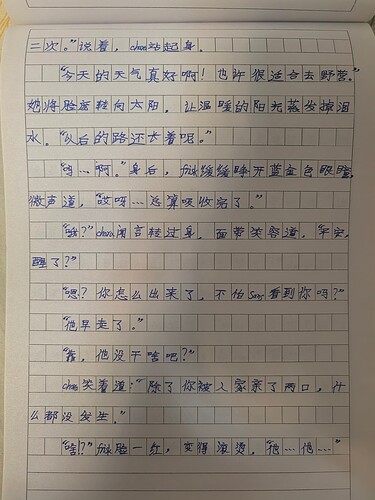 二次。”说着，chara站起身。
“今天的天气真好啊！也许很适合去野营。”
她将脸庞转向太阳，让温暖的阳光蒸发掉泪
水。“以后的路还长着呢。”
“唔…啊。”身后，frisk缓缓睁开蓝金色眼瞳，
微声道，“哎呀…总算吸收完了。”
“哦？”chara闻言转过身，面带笑容道，“平安，
醒了？”
“嗯？你怎么出来了，不怕Sans看到你吗？”
“他早走了。”
“靠，他没干啥吧？”
chara笑着道：“除了你被人家亲了两口，什
么都没发生。”
“啥？”frisk脸一红，变得滚烫，“他……他……”